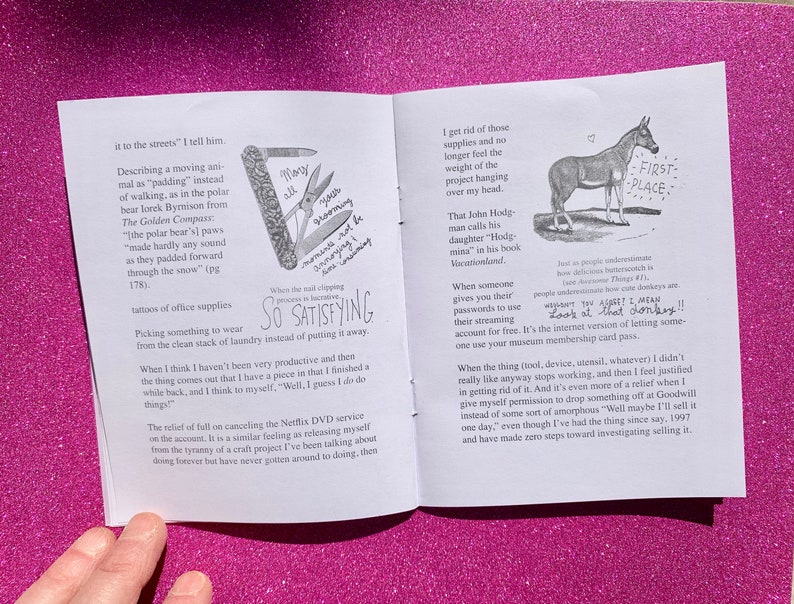 it to the streets” I tell him.
Describing a moving ani-
mal as “padding” instead
of walking, as in the polar
bear Iorek Byrnison from
The Golden Compass:
“[the polar bear’s] paws
“made hardly any sound
as they padded forward
through the snow” (pg
178).
tattoos of office supplies
Picking something to wear
from the clean stack of laundry instead of putting it away.
When I think I haven’t been very productive and then
the thing comes out that I have a piece in that I finished a
while back, and I think to myself, “Well, I guess I do do
things!”
The relief of full on canceling the Netflix DVD service
on the account. It is a similar feeling as releasing myself
from the tyranny of a craft project I’ve been talking about
doing forever but have never gotten around to doing, then
May
all
your
grooming
moments not be
annoying &
time consuming
When the nail clipping
process is lucrative
SO SATISFYING
I get rid of those
supplies and no
longer feel the
weight of the
project hanging
over my head.
That John Hodg-
man calls his
daughter “Hodg-
mina” in his book
Vacationland.
When someone
gives you their
passwords to use
their streaming
account for free. It’s the internet version of letting some-
one use your museum membership card pass.
When the thing (tool, device, utensil, whatever) I didn’t
really like anyway stops working, and then I feel justified
in getting rid of it. And it’s even more of a relief when I
give myself permission to drop something off at Goodwill
instead of some sort of amorphous “Well maybe I’ll sell it
one day,” even though I’ve had the thing since say, 1997
and have made zero steps toward investigating selling it.
FIRST
PLACE
Just as people underestimate
how delicious butterscotch is
(see Awesome Things #1),
people underestimate how cute donkeys are.
WOULDN'T YOU AGREE? I MEAN
Look at that donkey!!